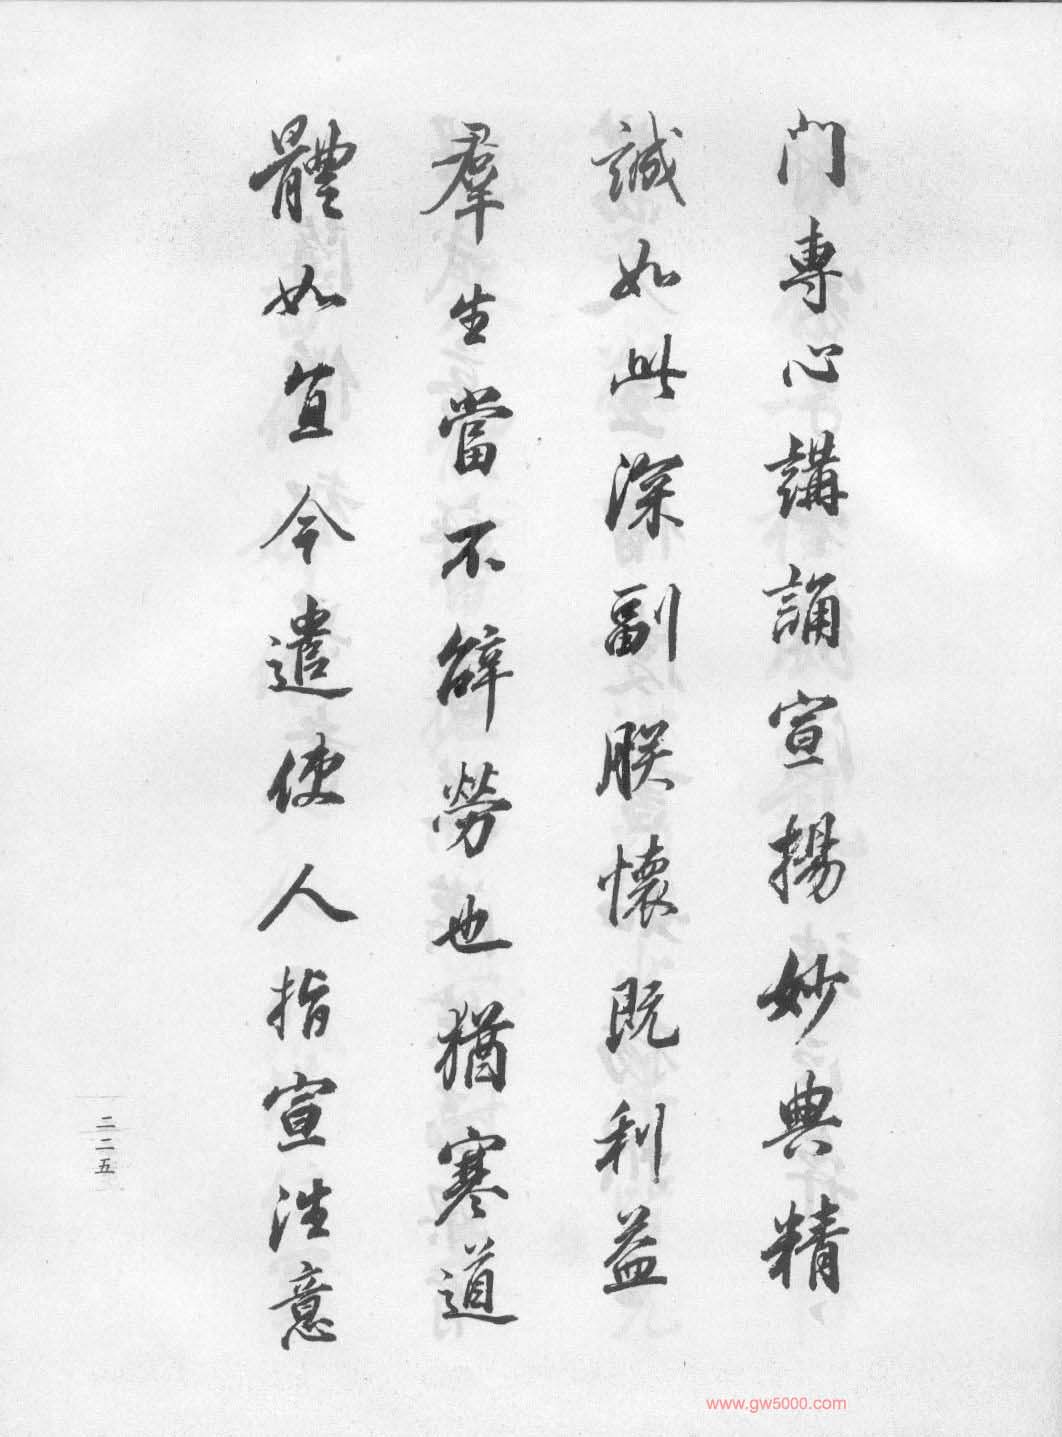 门專心講誦宣揚妙典精
誠如此深副朕懷既利益
羣生當不辭勞也猶寒道
體如宜今遣使人指宣往意
二二五
www.gw5000.com